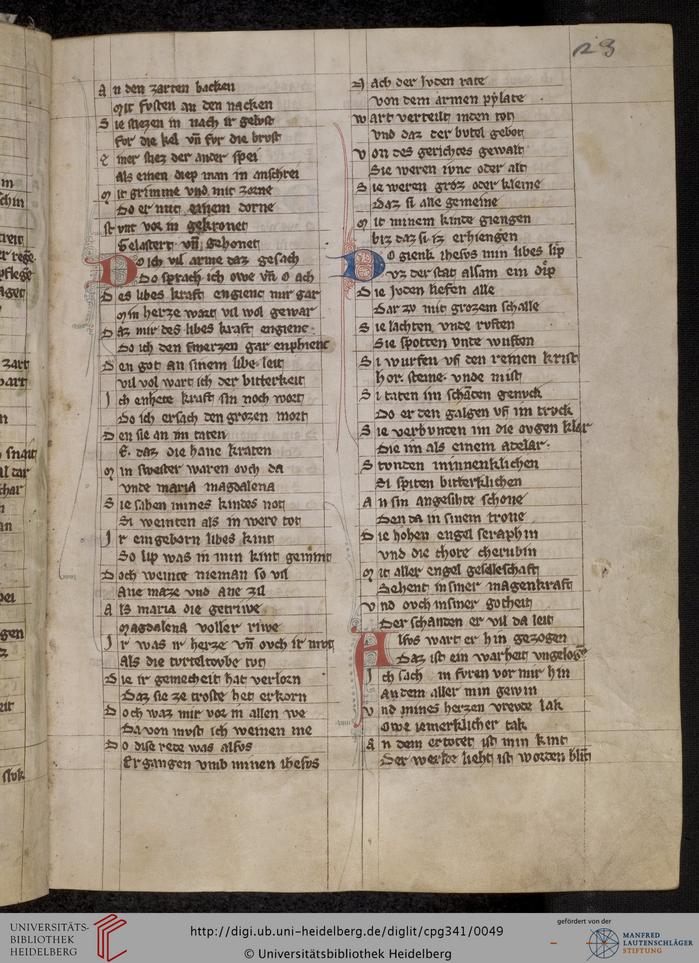 23
An den zarten backen
Mit fvsten an den nacken
Sie stiezen in nach ir gelvst
For die kel vn̄ fvr die brvst
Einer stiez der ander spei
Als einen diep man in anschrei
Mit grimme vnd mit zorne
Do er mit einem dorne
vor in gekronet
Gelastert vn̄ gehonet
Do ich vil arme daz gesach
Do sprach ich owe vn̄ o ach
Des libes kraft engienc mir gar
Min herze wart vil wol gewar
Daz mir des libes kraft engienc
Do ich den smerzen gar enphienc
Den got an sinem libe leit
Vil vol wart ich der bitterkeit
Ich enhete kraft sin noch wort
Do ich ersach den grozen mort
Den sie an im taten
E. daz die hane kraten
Min swester waren ovch da
Vnde maria magdalena
Sie sahen mines kindes not
Si weinten als in were tot
Ir eingeborn libes kint
So lip was in min kint gemint
Doch weinte nieman so vil
Ane maze vnd ane zil
Als maria die getriwe
Magdalena voller riwe
Ir was ir herze vn̄ ovch ir mvt
Als die tvrteltovbe tvt
Die ir gemecheit hat verlorn
Daz sie ze troste het erkorn
Doch waz mir vor in allen we
Da von mvst ich weinen me
Do dise rede was alsvs
Ergangen vmb minen ihesvs
Nach der Jvden rate
Von dem armen pylate
Wart verteilt in den tot
Vnd daz der bvtel gebot
Von des gerichtes gewalt
Sie weren ivnc oder alt
Sie weren groz oder kleine
Daz si alle gemeine
Mit minem kinde giengen
Biz daz si iz erhiengen
Do gienk ihesvs min libes lip
Vz der stat allsam ein dip
Die Jvden liefen alle
Dar zv mit grozem schalle
Sie lachten vnde rvften
Sie spotten vnte wuften
Si wurfen vf den reinen krist
Hor. steine. vnde mist
Si taten im schaden genvck
Do er den galgen vf im trvck
Sie verbvnden im die ovgen klar
Die im als einem adelar
Stvnden minneklichen
Si spiten bitterklichen
An sin angesihte schone
Den da in sinem trone
Die hohen engel seraphin
Vnd die chore cherubin
Mit aller engel geselleschaft
Sehent in siner magenkraft
Vnd ovch in siner gotheit
Der schanden er vil da leit
Alsvs wart er hin gezogen
Daz ist ein warheit vngelogen
Ich sach in fvren vor mir hin
An dem aller min gewin
Vnd mines herzen vrevde lak
Owe iemerklicher tak
An dem ertotet ist min kint
Der werlde lieht ist worden blint
UNIVERSITÄTS-
BIBLIOTHEK
HEIDELBERG
http://digi.ub.uni-heidelberg.de/diglit/cpg341/0049
© Universitätsbibliothek Heidelberg
gefördert von der
MANFRED
LAUTENSCHLÄGER
STIFTUNG